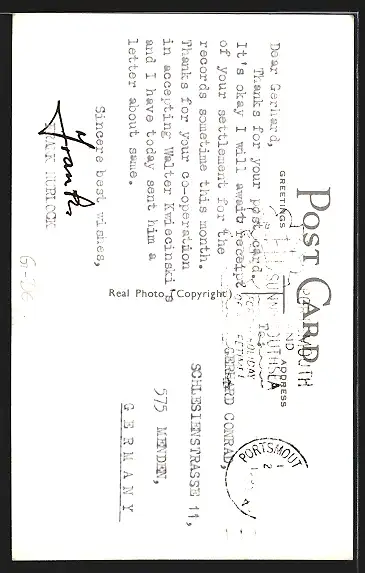 POST CARD
GREETINGS
ADDRESS
Dear Gerhard,
Thanks for your post card.
It's okay I will await receipt
of your settlement for the
records sometime this month.
Thanks for your co-operation
in accepting Walter Kwiecinski's
and I have today sent him a
letter about same.
Sincere best wishes,
Frank
FRANK
Real Photo (Copyright)
GERHARD CONRAD,
SCHLESIENSTRASSE 11,
575 MENDEN,
GERMANY
PORTSMOUT
SUNNY SOUTHSEA